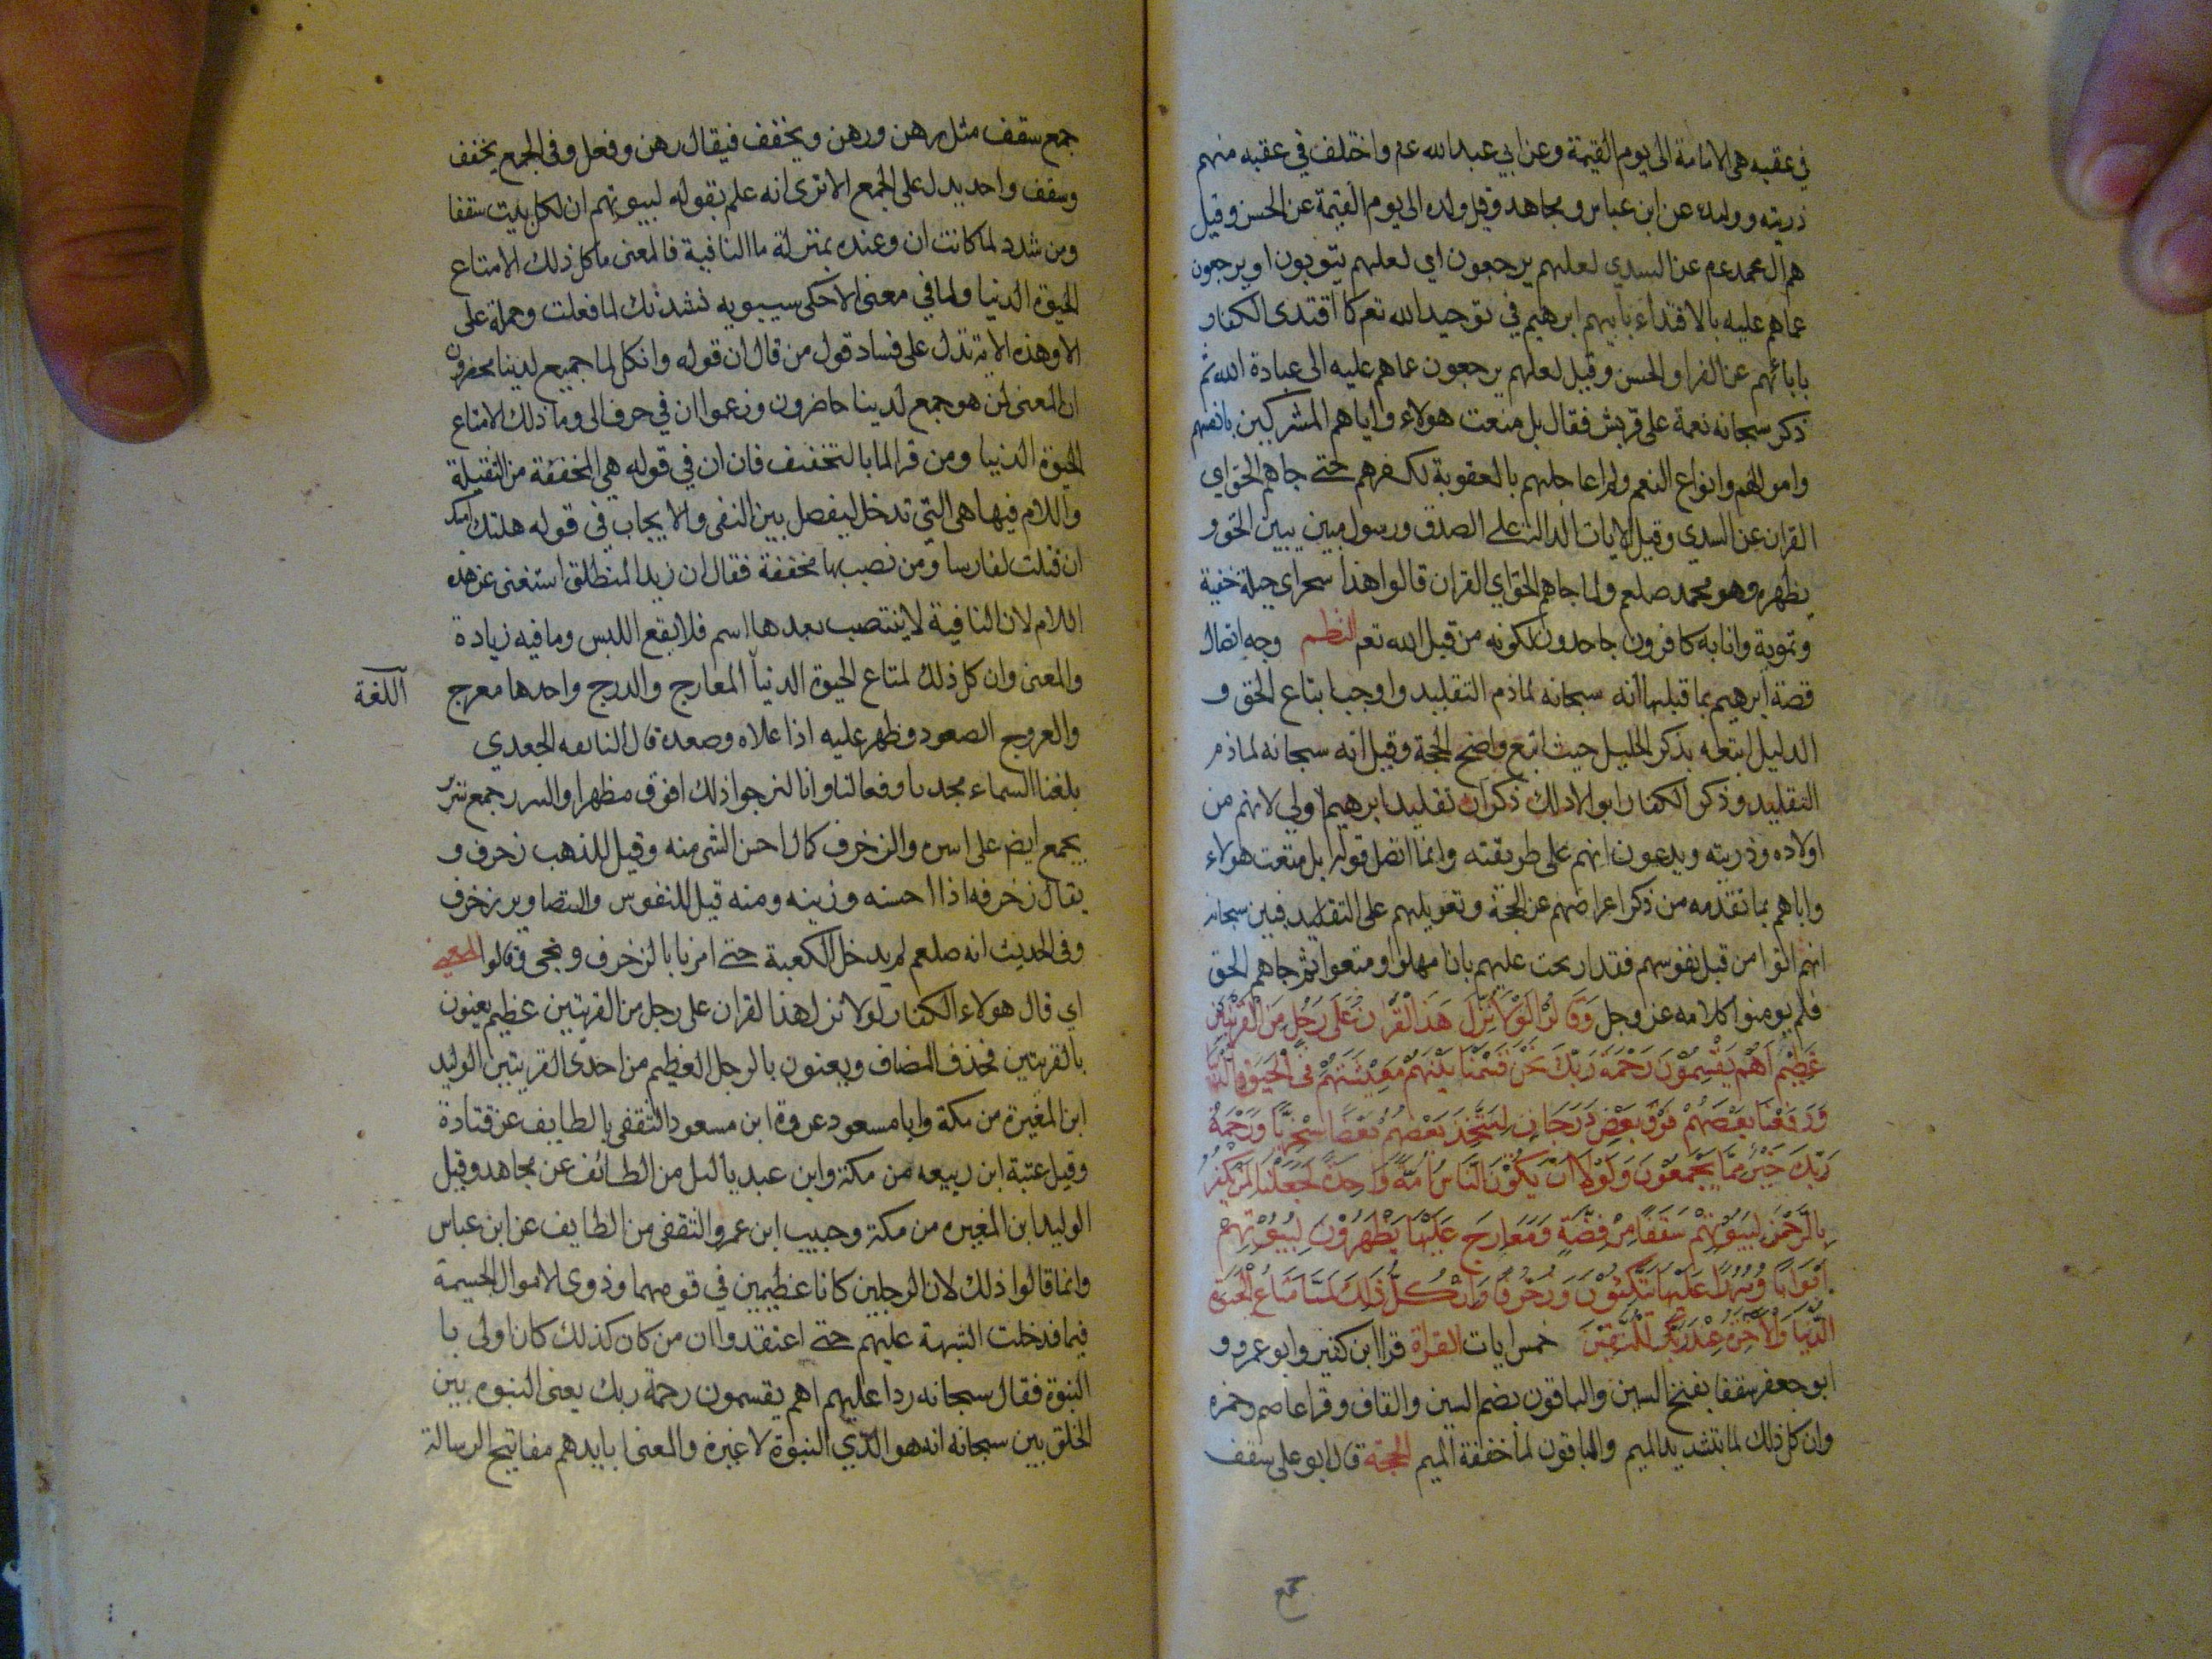 في عقبه هى الامامة الى يوم القيمة وعن ابي عبد الله عم واختلف في عقبه منهم
ذريته وولده عن ابن عباس ومجاهد وقيل ولده الى يوم القيمة عن الحسن وقيل
هم ال محمد عم عن السدي لعلهم يرجعون اي لعلهم يتوبون او يرجعون
عماهم عليه بالاقتداء بابيهم ابرهيم في توحيد الله تعم كما اقتدى الكفار
بابائهم عن الفرا والحسن وقيل لعلهم يرجعون عماهم عليه الى عبادة الله ثم
ذكر سبحانه نعمة على قريش فقال بل متعت هولاء واباهم المشركين بانفسهم
واموالهم وانواع النعم ولم اعاجلهم بالعقوبة لكفرهم حتى جاهم الحق اي
القران عن السدي وقيل الايات الدالة على الصدق ورسول مبين يبين الحق و
يظهره وهو محمد صلعم ولما جاهم الحق اي القران قالوا هذا سحر اي حيلة خفية
وتموية وانا به كافرون جاحدون لكونه من قبل الله تعم النظم وجه اتصال
قصة ابرهيم بما قبلها انه سبحانه لما ذم التقليد واوجب ابتاع الحق و
الدليل ابتعه بذكر الخليل حيث اتبع واضح الحجة وقيل انه سبحانه لما ذم
التقليد وذكر الكفار ابوا الا ذلك ذكر ان تقليد ابرهيم اولي لانهم من
اولاده وذريته ويدعون انهم على طريقته وانما اتصل قوله بل متعت هولاء
واباهم بما تقدمه من ذكر اعراضهم عن الحجة وتعويلهم على التقليد فبين سبحانه
انهم اتوا من قبل نفوسهم فقد ازيحت عليهم بان امهلوا ومتعوا ثم جاهم الحق
فلم يومنوا كلامه عز وجل وَقَالُوا لَوْلَا نُزِّلَ هَذَا الْقُرْآنُ عَلَى رَجُلٍ مِنَ الْقَرْيَتَيْنِ
عَظِيْمٍ اَهُمْ يَقْسِمُوْنَ رَحْمَةَ رَبِّكَ نَحْنُ قَسَمْنَا بَيْنَهُمْ مَعِيْشَتَهُمْ فى الْحَيٰوةِ الدُّنْيَا
وَرَفَعْنَا بَعْضَهُمْ فَوْقَ بَعْضٍ دَرَجَاتٍ لِيَتَّخِذَ بَعْضُهُمْ بَعْضًا سُخْرِيًّا وَرَحْمَةُ
رَبِّكَ خَيْرٌ مِمَّا يَجْمَعُوْنَ وَلَوْلَا اَنْ يَكُوْنَ النَّاسُ اُمَّةً وَاحِدَةً لَجَعَلْنَا لِمَنْ يَكْفُرُ
بِالرَّحْمٰنِ لِبُيُوْتِهِمْ سَقَفًا مِنْ فِضَّةٍ وَمَعَارِجَ عَلَيْهَا يَظْهَرُوْنَ لِبُيُوْتِهِمْ
اَبْوَابًا وَسُرُرًا عَلَيْهَا يَتَّكِئُوْنَ وَزُخْرُفًا وَاِنْ كُلُّ ذٰلِكَ لَمَّا مَتَاعُ الْحَيٰوةِ
الدُّنْيَا وَالْاٰخِرَةُ عِنْدَ رَبِّكَ لِلْمُتَّقِيْنَ خمس ايات القراة قرا ابن كثير وابو عمرو و
ابو جعفر سقفا بفتح السين والباقون بضم السين والقاف وقرا عاصم وحمزه
وان كل ذلك لما بتشديد الميم والباقون لما خففة الميم الحجة قال ابو علي سقف
جمع
جمع سقف مثل رهن ورهن ويخفف فيقال رهن وفعل وفى الجمع يخفف
وسقف واحد يدل على الجمع الا ترى انه علم بقوله لبيوتهم ان لكل بيت سقفا
ومن شدد لما كانت ان وعنده بمنزلة ما النافية فالمعنى ما كل ذلك الا متاع
الحيوة الدنيا ولما في معنى الا حكى سيبويه نشدتك لما فعلت وحمله على
الا وهذه الاية تدل على فساد قول من قال ان قوله وان كل لما جميع لدينا محضرون
ان المعنى لمن هو جمع لدينا حاضرون وزعموا ان في حرف ابي وما ذلك الا متاع
الحيوة الدنيا ومن قرا لما بالتخفيف فان ان في قوله هي المخففة من الثقيلة
واللام فيها هى التي تدخل ليفصل بين النفى والايجاب في قوله هلتك امك
ان قتلت لفارسا ومن نصب بها مخففة فقال ان زيدا لمنطلق استغنى عن هذه
اللام لان النافية لا ينتصب بعدها اسم فلا يقع اللبس وما فيه زيادة
والمعنى وان كل ذلك لمتاع الحيوة الدنيا المعارج والدرج واحدها معرج
اللغة
والعروج الصعود وظهر عليه اذا علاه وصعده قال النابغه الجعدي
بلغنا السماء مجدنا وفعالنا وانا لنرجوا ذلك افوق مظهرا والسرر جمع سرير
يجمع ايضا على اسره والزخرف كمال حسن الشى منه وقيل للذهب زخرف و
يقال زخرفه اذا احسنه وزينه ومنه قيل للنقوس والتصاوير زخرف
وفى الحديث انه صلعم لم يدخل الكعبة حتى امر بالزخرف ونحى وقالوا المعنى
اي قال هولاء الكفار لولا نزل هذا القران على رجل من القريتين عظيم يعنون
بالقريتين فحذف المضاف ويعنون بالرجل العظيم من احدى القريتين الوليد
ابن المغيره من مكة وابا مسعود عروة ابن مسعود الثقفى بالطايف عن قتادة
وقيل عتبة ابن ربيعه من مكة وابن عبد ياليل من الطائف عن مجاهد وقيل
الوليد ابن المغيره من مكة وحبيب ابن عمرو الثقفى من الطايف عن ابن عباس
وانما قالوا ذلك لان الرجلين كانا عظيمين في قومهما وذوى الاموال الجسيمة
فيما فدخلت الشبهة عليهم حتى اعتقدوا ان من كان كذلك كان اولى با
النبوة فقال سبحانه ردا عليهم اهم يقسمون رحمة ربك يعنى النبوه بين
الخلق بين سبحانه انه هو الذي النبوة لا غيره والمعنى ابايدهم مفاتيح الرسالة